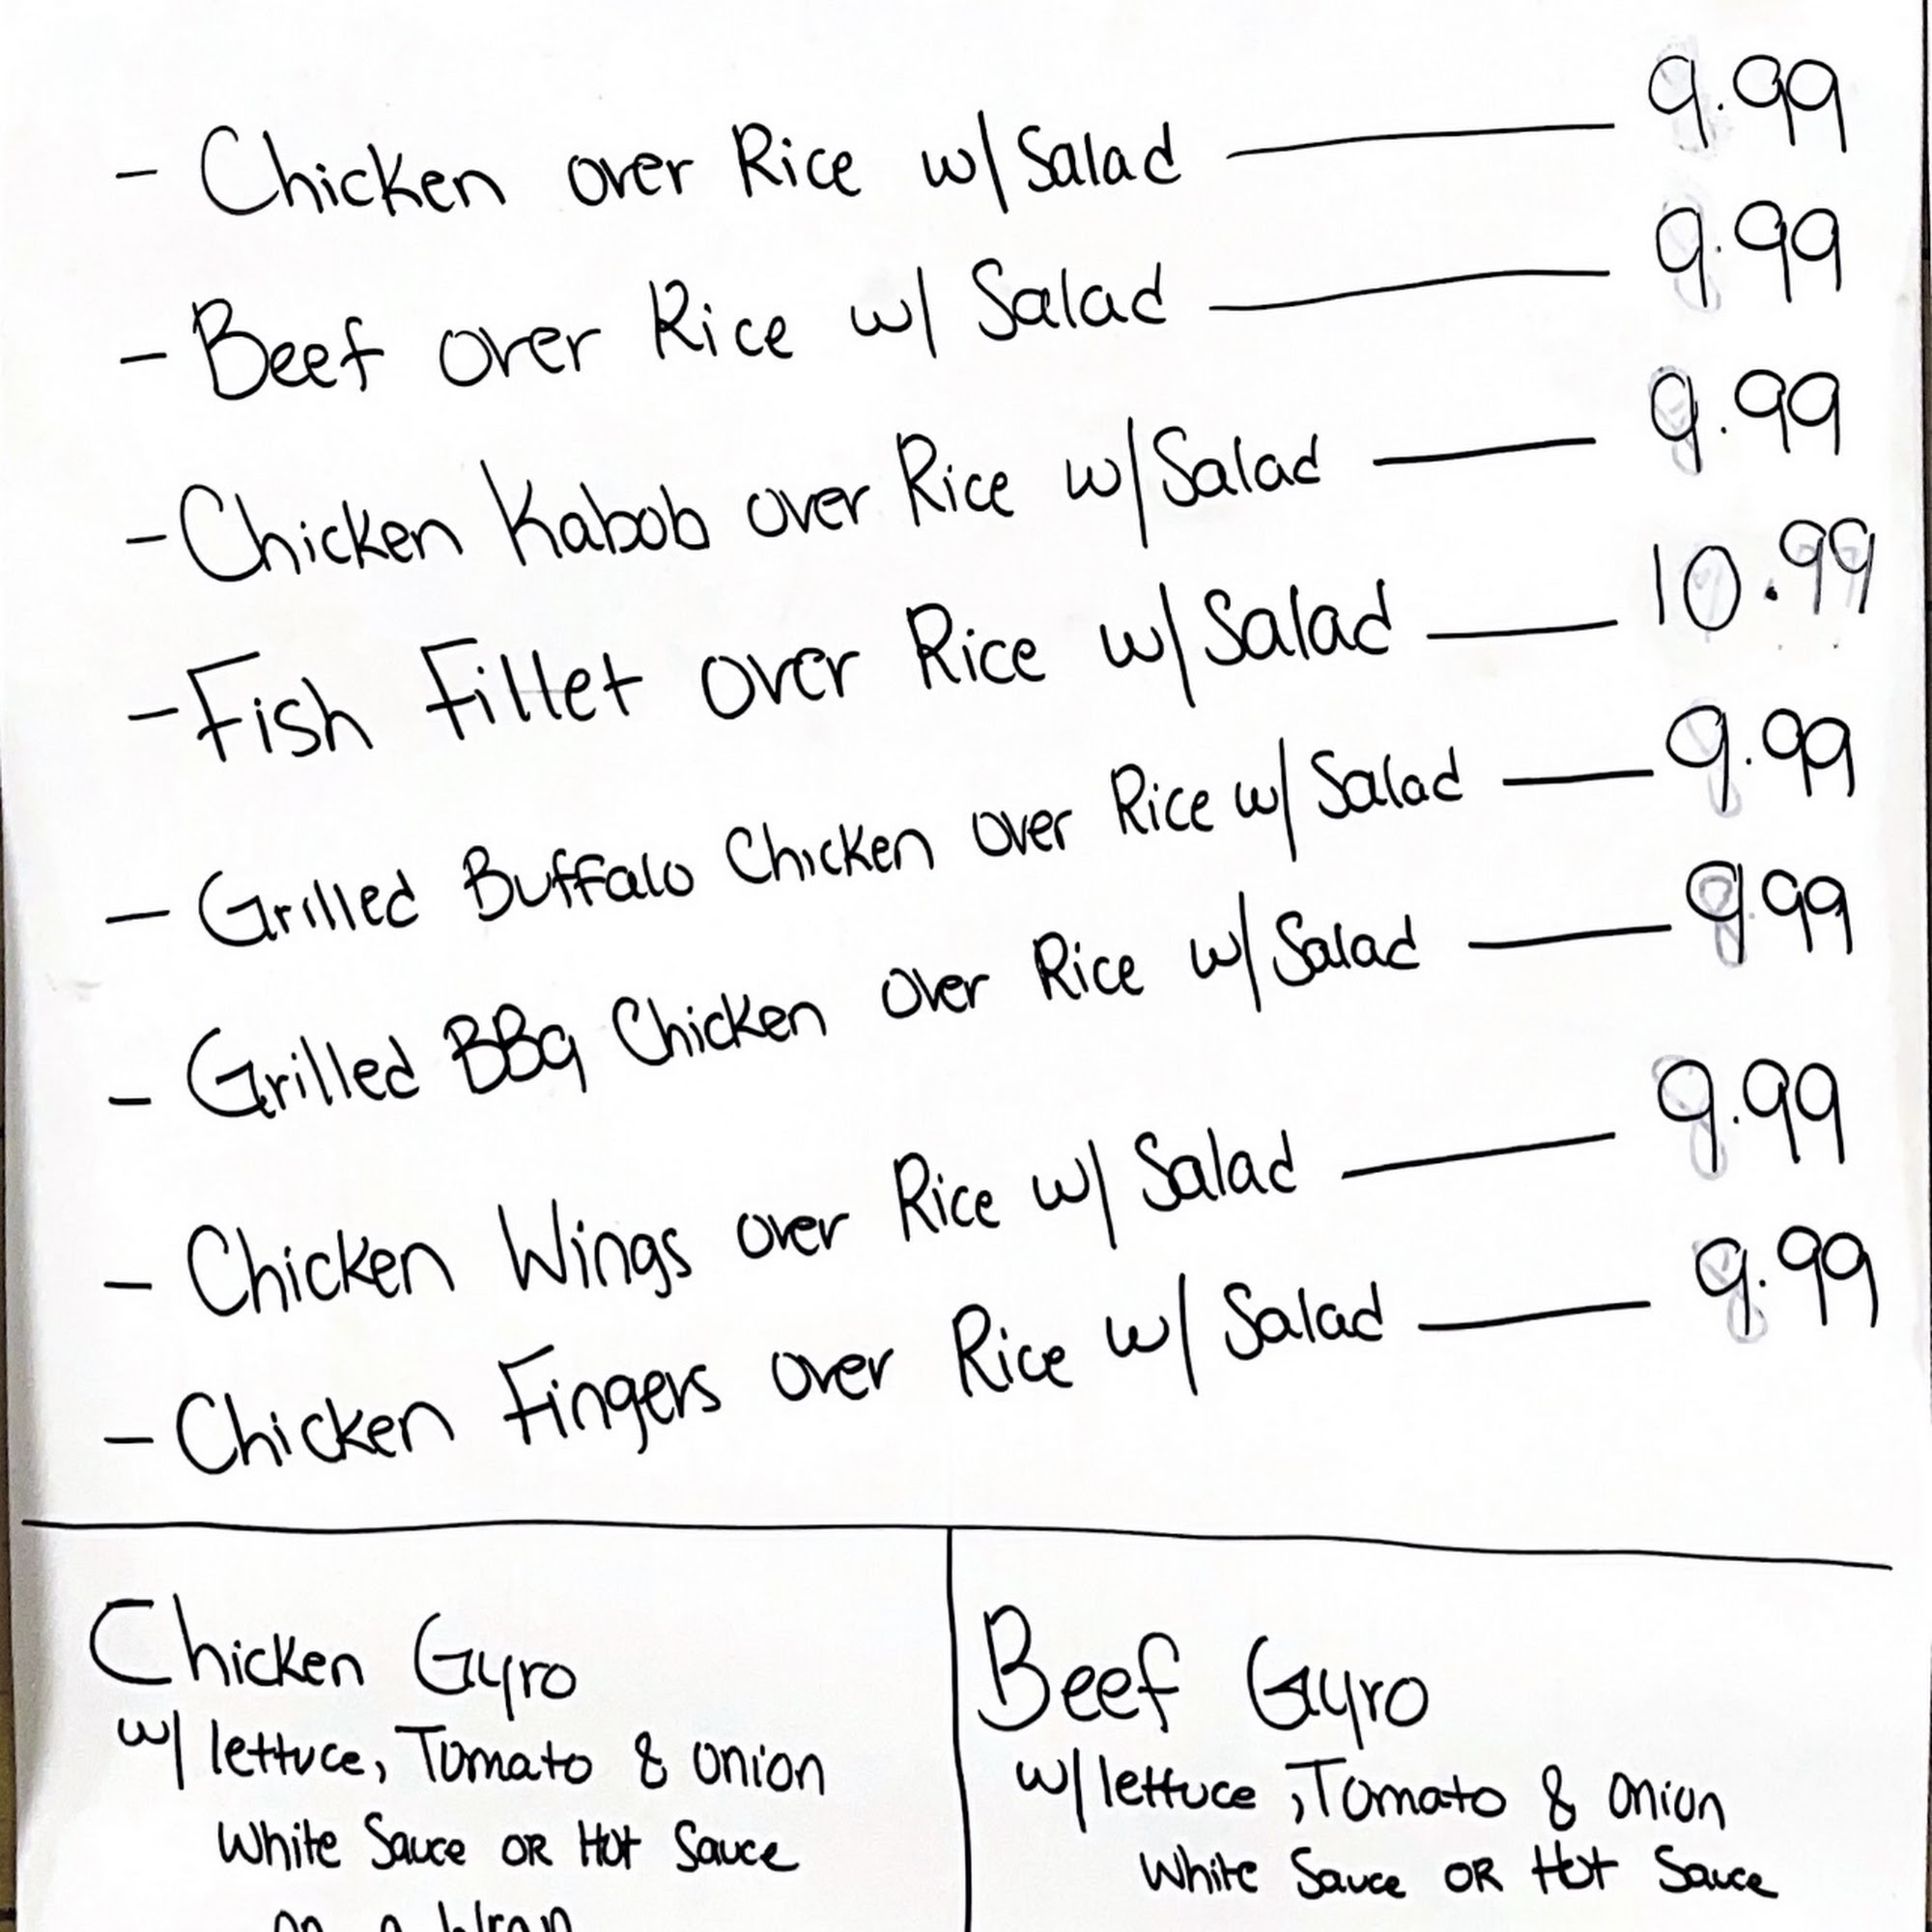 - Chicken over Rice w/ Salad — 9.99
- Beef over Rice w/ Salad — 9.99
- Chicken Kabob over Rice w/ Salad — 9.99
- Fish Fillet over Rice w/ Salad — 10.99
- Grilled Buffalo Chicken over Rice w/ Salad — 9.99
- Grilled BBq Chicken over Rice w/ Salad — 9.99
- Chicken Wings over Rice w/ Salad — 9.99
- Chicken Fingers over Rice w/ Salad — 9.99
Chicken Gyro
w/ lettuce, Tomato & onion
White Sauce OR Hot Sauce
on a Wrap
Beef Gyro
w/ lettuce, Tomato & onion
White Sauce OR Hot Sauce